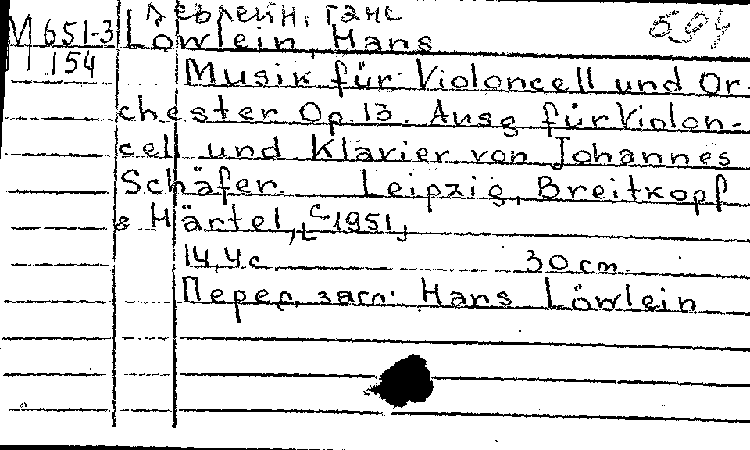 Левлейн, Ганс
594
М 651-3 Löwlein, Hans
154
Musik für Violoncell und Or-
chester Op 13. Ausg für Violon-
cell und Klavier von Johannes
Schäfer. Leipzig, Breitkopf
& Härtel, [c 1951]
14, 4 с 30 cm
Перед загл: Hans Löwlein